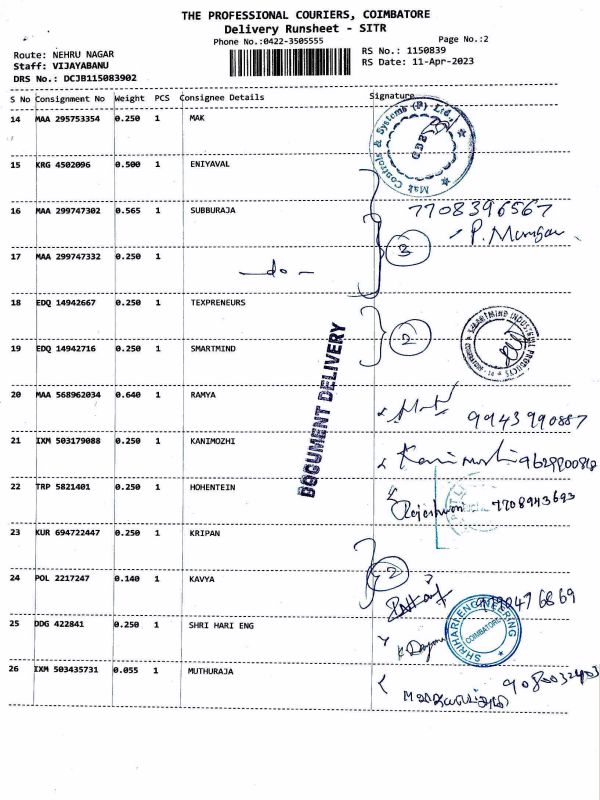 THE PROFESSIONAL COURIERS, COIMBATORE
Delivery Runsheet - SITR
Phone No.:0422-3505555
Page No.:2
Route: NEHRU NAGAR
RS No.: 1150839
Staff: VIJAYABANU
RS Date: 11-Apr-2023
DRS No.: DCJB115083902
S No Consignment No Weight PCS Consignee Details Signature
14 MAA 295753354 0.250 1 MAK
Mak Controls & Systems (P) Ltd.,
CBE
15 KRG 4502096 0.500 1 ENIYAVAL
16 MAA 299747302 0.565 1 SUBBURAJA 7708396567
P. Murugan
3
17 MAA 299747332 0.250 1 —do—
18 EDQ 14942667 0.250 1 TEXPRENEURS
2
SMARTMIND INDUSTRIAL PRODUCTS
19 EDQ 14942716 0.250 1 SMARTMIND
DOCUMENT DELIVERY
20 MAA 568962034 0.640 1 RAMYA
9943990887
21 IXM 503179088 0.250 1 KANIMOZHI Kanimozhi
22 TRP 5821401 0.250 1 HOHENTEIN
Rajeshwari 7708943693
23 KUR 694722447 0.250 1 KRIPAN
2
24 POL 2217247 0.140 1 KAVYA
25 DDG 422841 0.250 1 SHRI HARI ENG
SHRIHARI ENGINEERING
COIMBATORE
26 IXM 503435731 0.055 1 MUTHURAJA